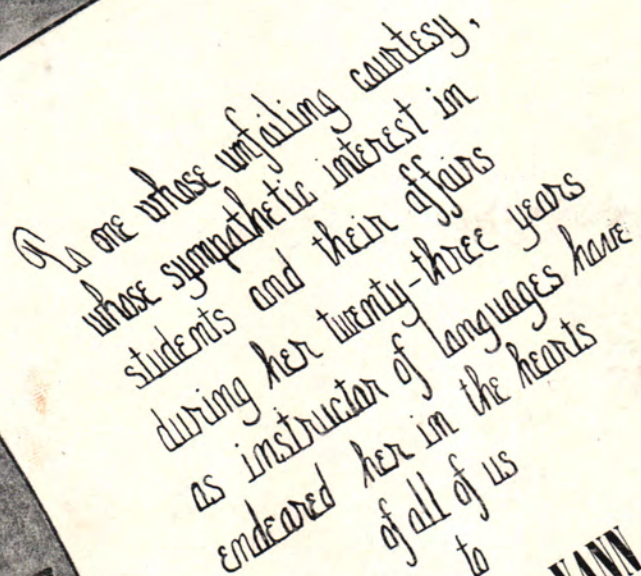 To one whose unfailing courtesy,
whose sympathetic interest in
students and their affairs
during her twenty-three years
as instructor of languages have
endeared her in the hearts
of all of us
to